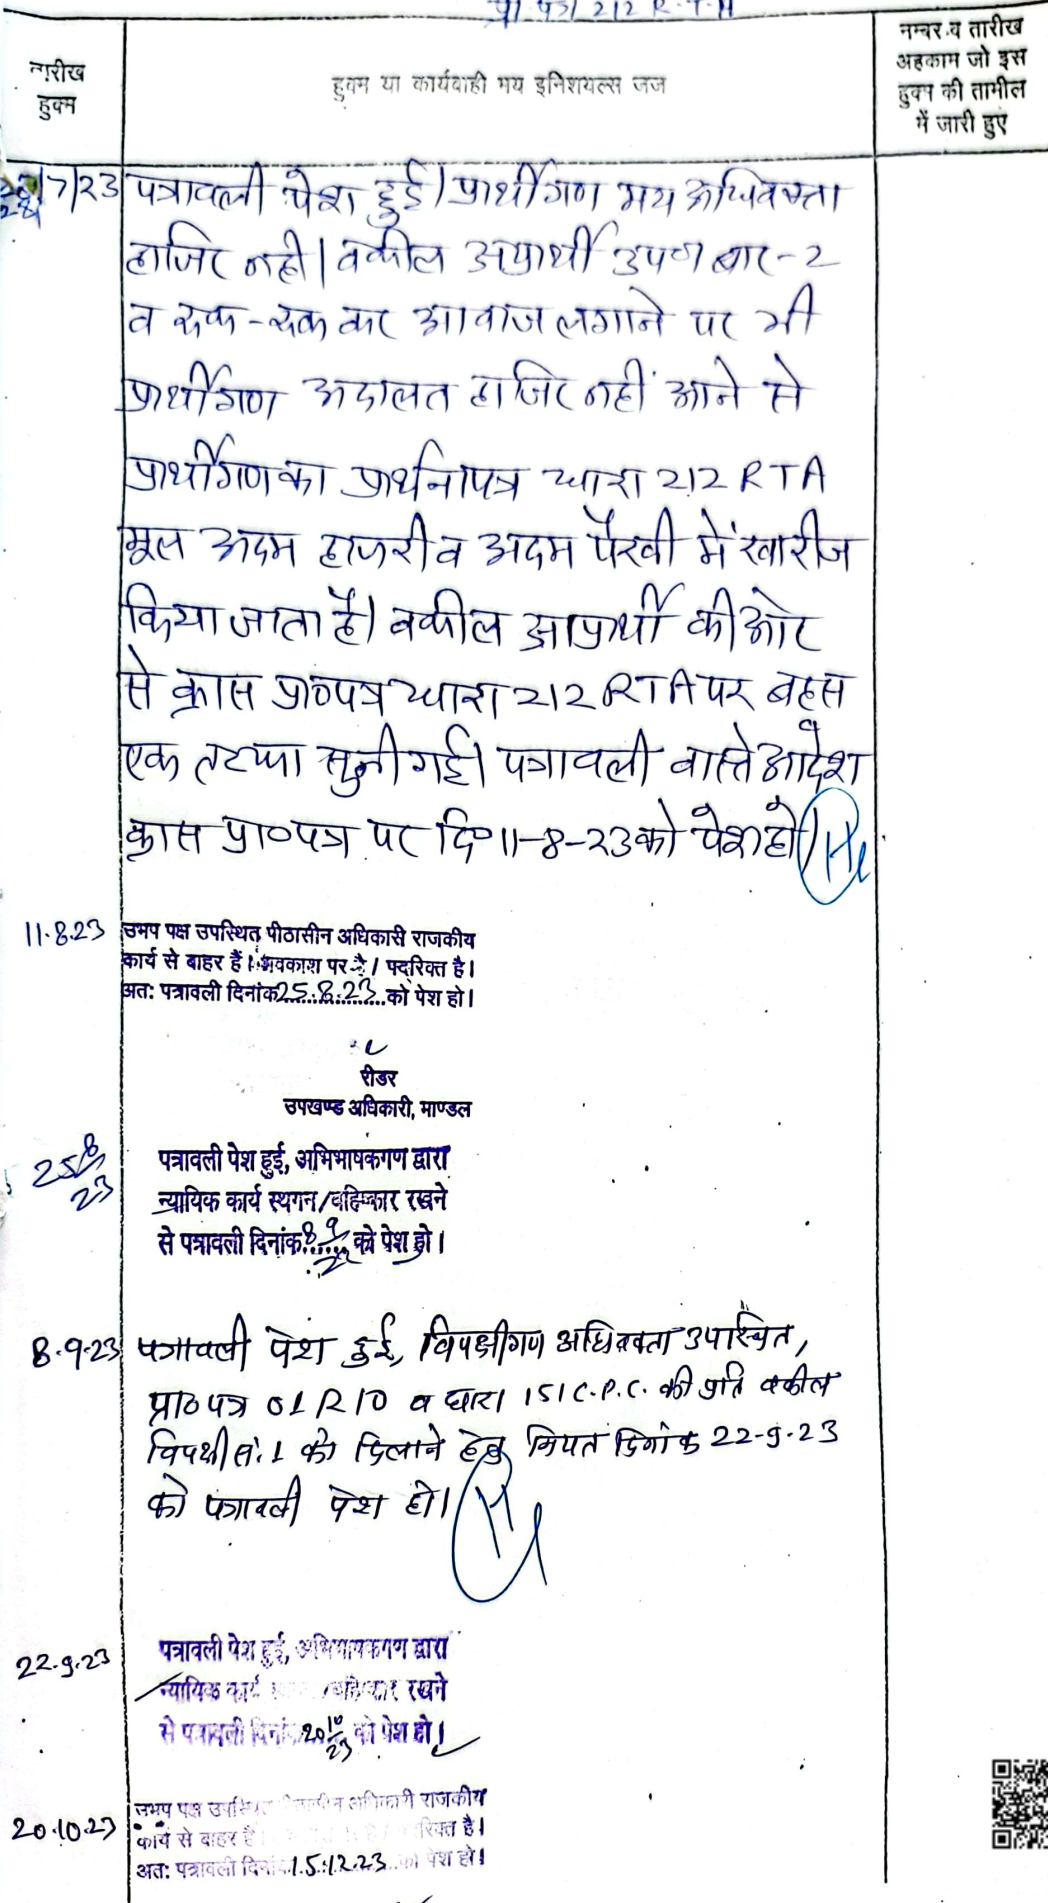 प्रा पत्र 212 R.T.A
तारीख
हुक्म
हुक्म या कार्यवाही मय इनिशयल्स जज
नम्बर व तारीख
अहकाम जो इस
हुक्म की तामील
में जारी हुए
7/23 पत्रावली पेश हुई। प्रार्थीगण मय अधिवक्ता
हाजिर नही। वकील अप्रार्थी उप० बार-2
व रूक-रूक कर आवाज लगाने पर भी
प्रार्थीगण अदालत हाजिर नहीं आने से
प्रार्थीगण का प्रार्थनापत्र धारा 212 RTA
मूल अदम हाजरी व अदम पैरवी में खारीज
किया जाता है। वकील अप्रार्थी की ओर
से क्रास प्रा०पत्र धारा 212 RTA पर बहस
एक तरफा सुनी गई। पत्रावली वास्ते आदेश
क्रास प्रा०पत्र पर दि० 11-8-23 को पेश हो।
11.8.23 उभय पक्ष उपस्थित पीठासीन अधिकारी राजकीय
कार्य से बाहर हैं। अवकाश पर है। पद रिक्त है।
अतः पत्रावली दिनांक 25.8.23 को पेश हो।
रीडर
उपखण्ड अधिकारी, माण्डल
25/8/23 पत्रावली पेश हुई, अभिभाषकगण द्वारा
न्यायिक कार्य स्थगन/बहिष्कार रखने
से पत्रावली दिनांक 8/9/23 को पेश हो।
8.9.23 पत्रावली पेश हुई, विपक्षीगण अधिवक्ता उपस्थित,
प्रा०पत्र O1R10 व धारा 151 C.P.C. की प्रति वकील
विपक्षी सं. 1 को दिलाने हेतु नियत दिनांक 22-9-23
को पत्रावली पेश हो।
22.9.23 पत्रावली पेश हुई, अभिभाषकगण द्वारा
न्यायिक कार्य /बहिष्कार रखने
से पत्रावली दिनांक 20/10/23 को पेश हो।
20.10.23 उभय पक्ष उपस्थित पीठासीन अधिकारी राजकीय
कार्य से बाहर हैं। रिक्त है।
अतः पत्रावली दिनांक 15.12.23 को पेश हो।